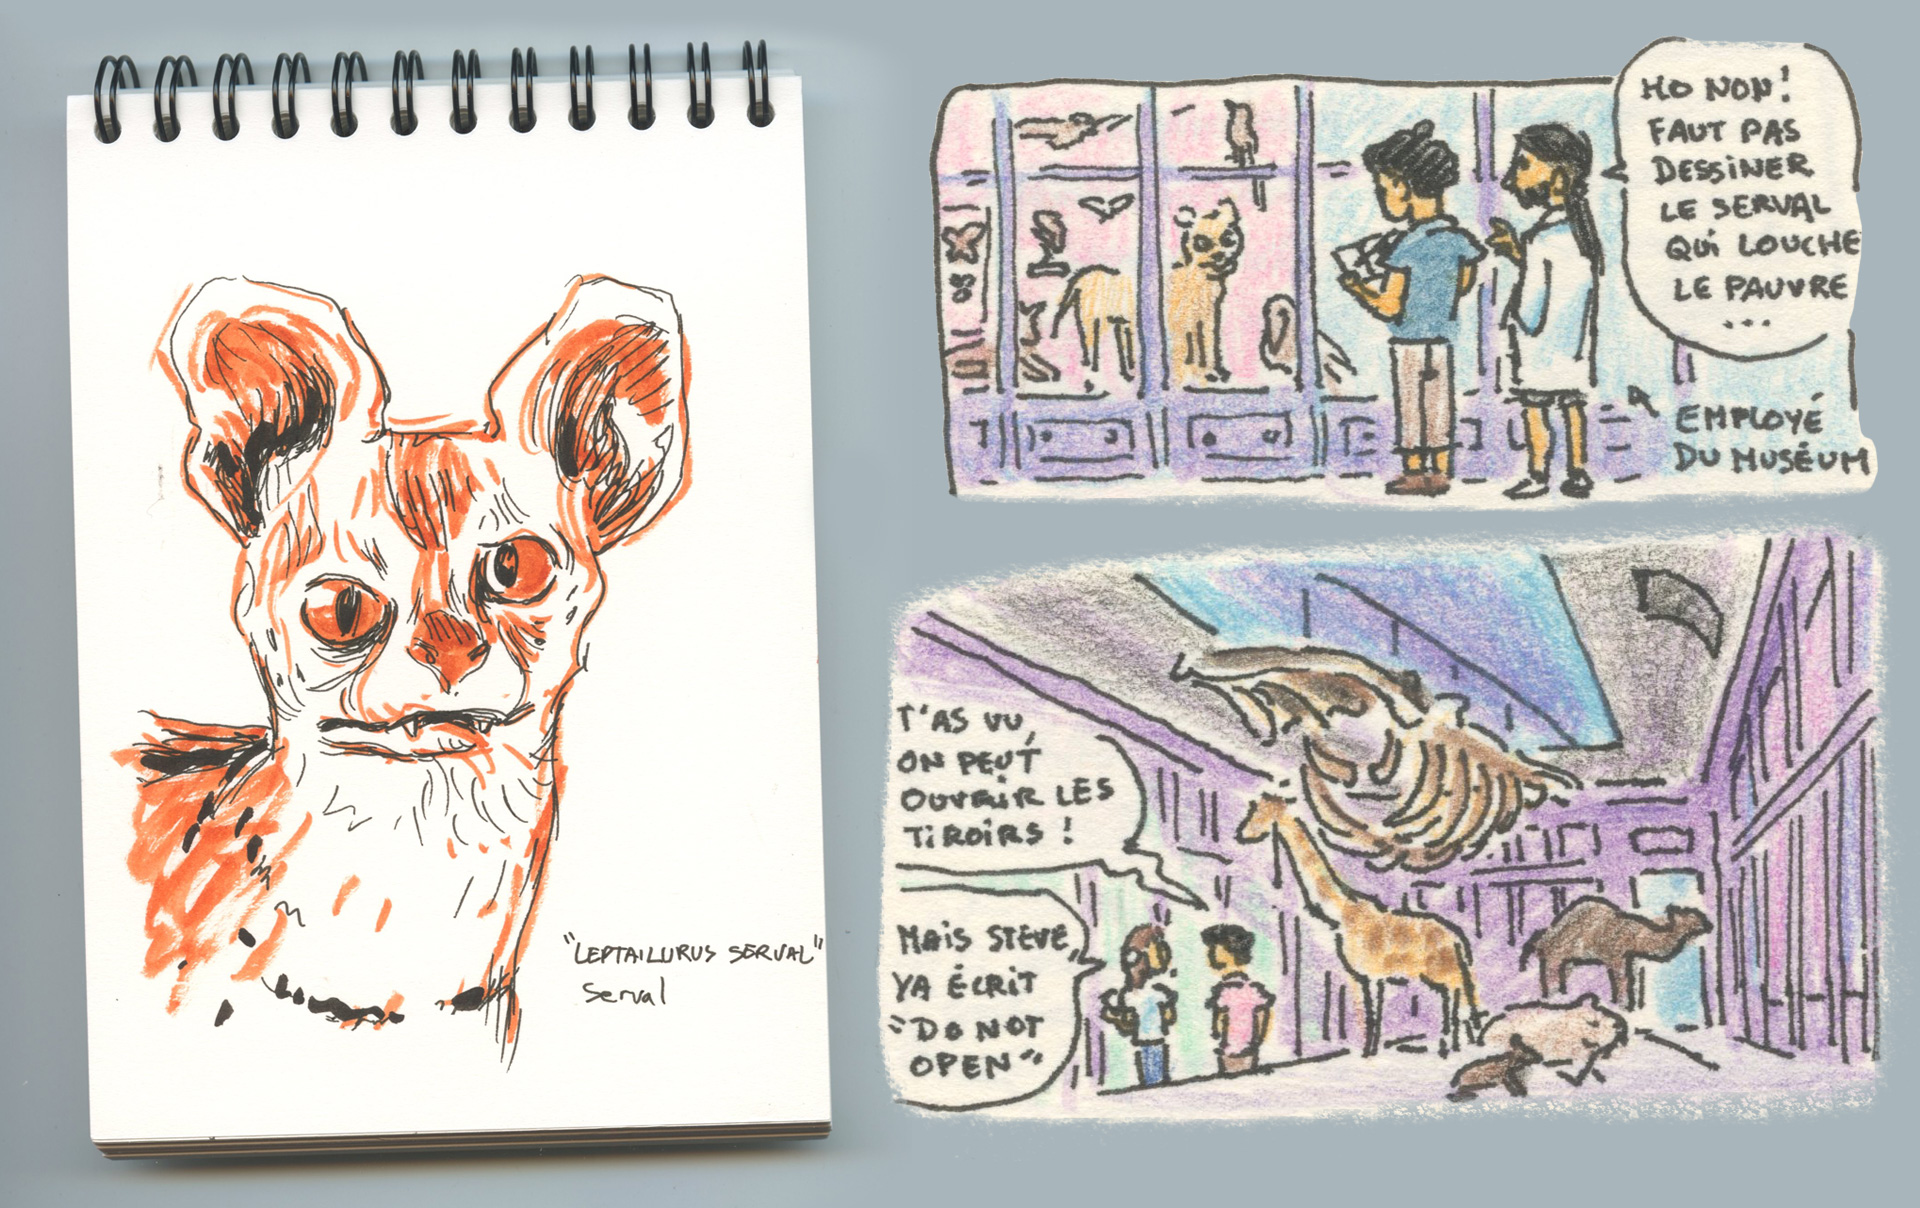 "LEPTAILURUS SERVAL"
Serval
HO NON!
FAUT PAS
DESSINER
LE SERVAL
QUI LOUCHE
LE PAUVRE
...
EMPLOYÉ
DU MUSÉUM
T'AS VU,
ON PEUT
OUVRIR LES
TIROIRS!
MAIS STEVE,
YA ÉCRIT
"DO NOT
OPEN"